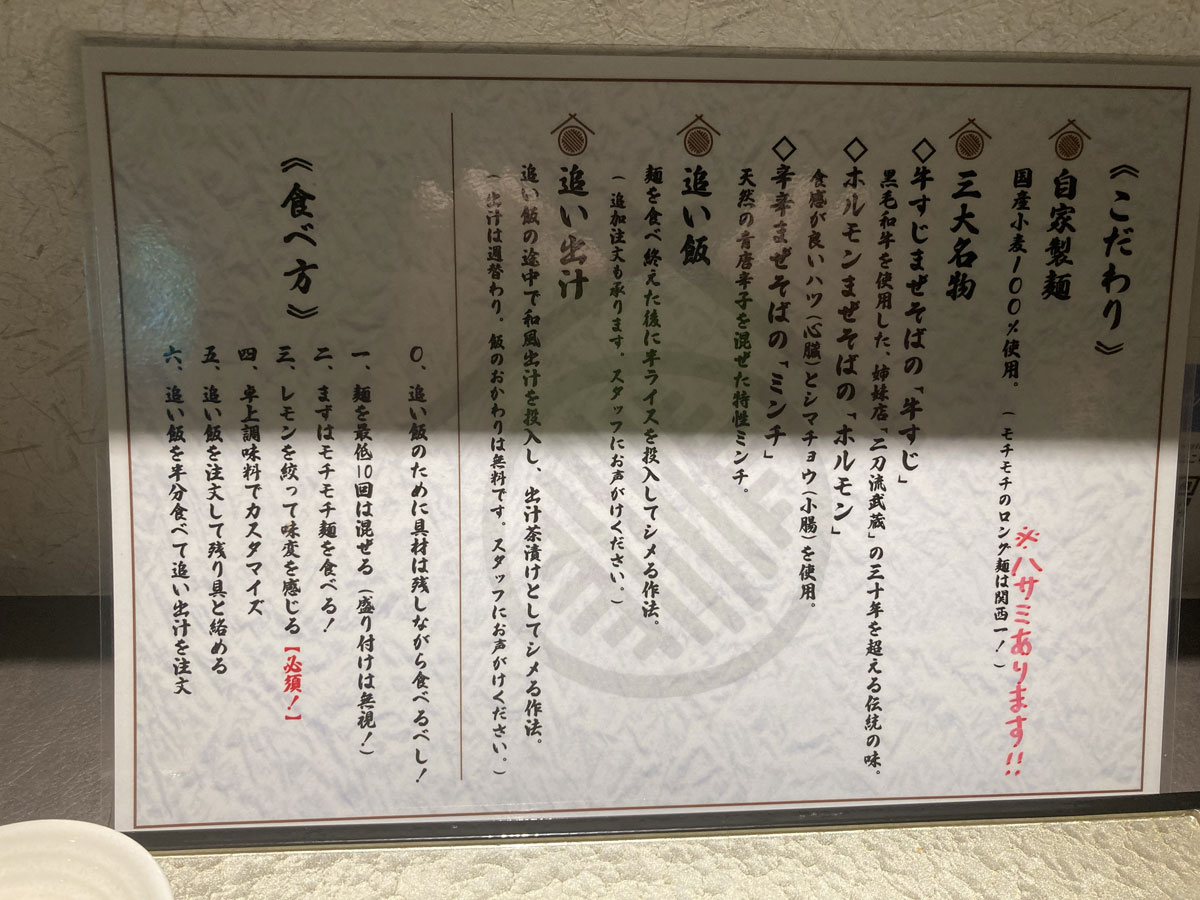 《こだわり》
自家製麺
国産小麦100%使用。(モチモチのロング麺は関西一!)
※ハサミあります!!
三大名物
◇牛すじまぜそばの「牛すじ」
黒毛和牛を使用した、姉妹店「二刀流武蔵」の三十年を超える伝統の味。
◇ホルモンまぜそばの「ホルモン」
食感が良いハツ(心臓)とシマチョウ(小腸)を使用。
◇辛辛まぜそばの「ミンチ」
天然の青唐辛子を混ぜた特性ミンチ。
追い飯
麺を食べ終えた後に半ライスを投入してシメる作法。
(追加注文も承ります。スタッフにお声がけください。)
追い出汁
追い飯の途中で和風出汁を投入し、出汁茶漬けとしてシメる作法。
(出汁は週替わり。飯のおかわりは無料です。スタッフにお声がけください。)
《食べ方》
〇、追い飯のために具材は残しながら食べるべし!
一、麺を最低10回は混ぜる(盛り付けは無視!)
二、まずはモチモチ麺を食べる!
三、レモンを絞って味変を感じる【必須!】
四、卓上調味料でカスタマイズ
五、追い飯を注文して残り具と絡める
六、追い飯を半分食べて追い出汁を注文